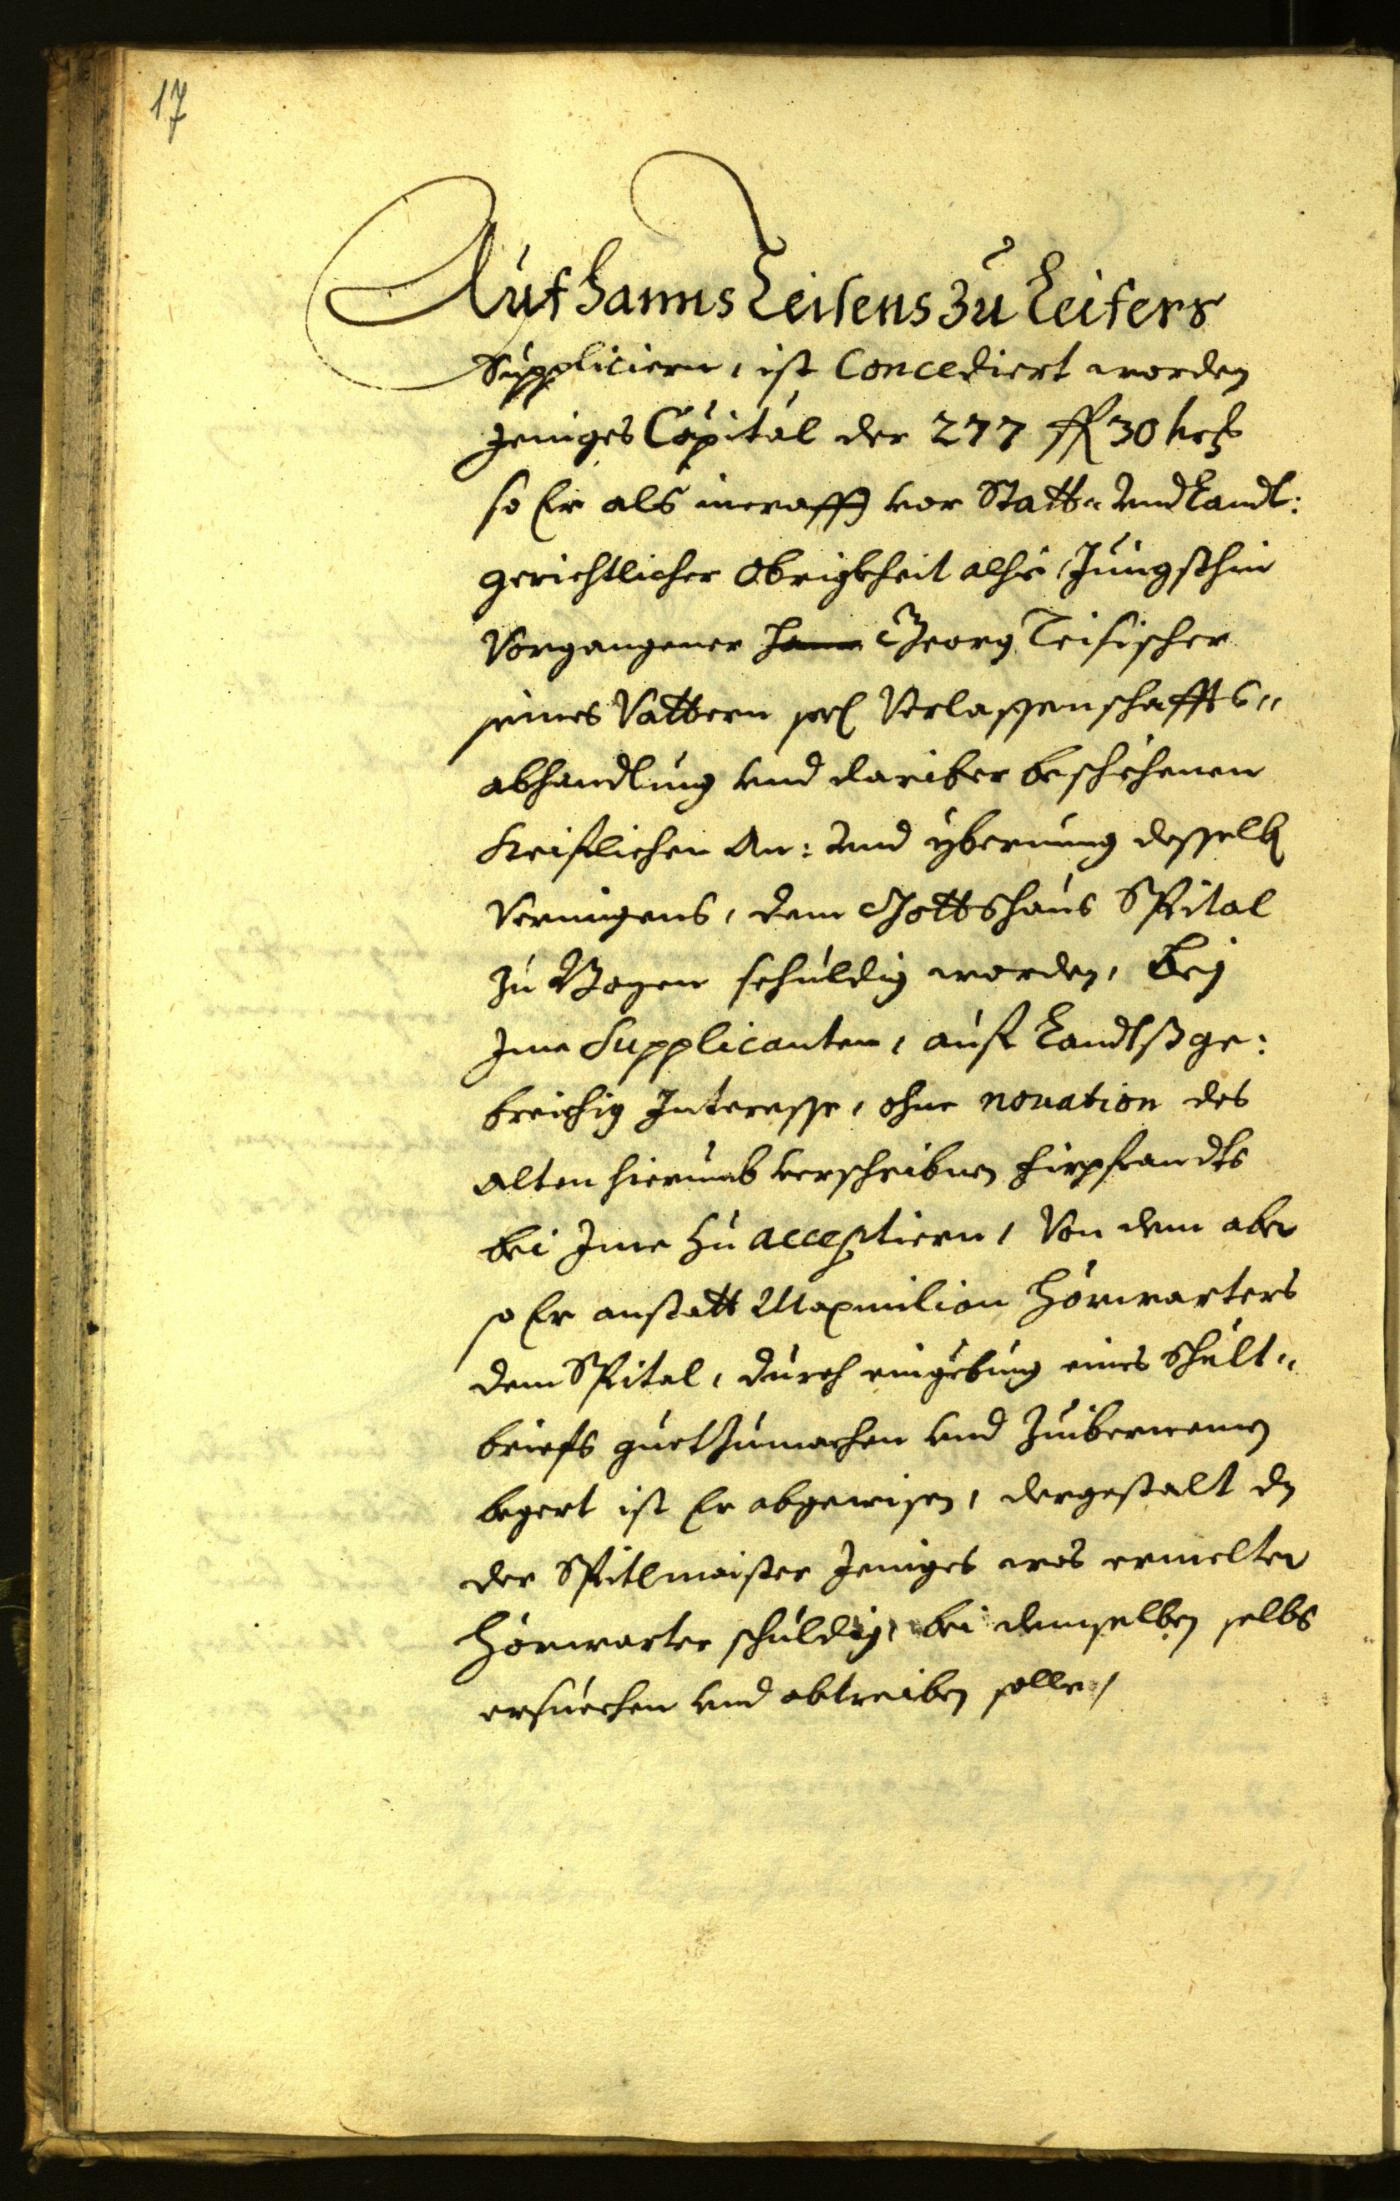 17
Auf Hanns Zeisens zu Leifers
Suppliciern, ist Concediert worden
Jeniges Capital der 277 fl 30 krz
so Er als vor Statt- und Landt:
gerichtlicher Obrigkheit alhie Jüngsthin
Vorgangener Hann Georg Zeisischer
seines Vattern seel Verlassenschaffts-
abhandlung und dariber beschehenen
Keiflichen An: und ybernung desselb
Vermigens, dem Gottshaus Spital
zu Bozen schuldig worden, Beij
Jme Supplicanten, auf Landtsge:
breichig Interesse, ohne novation des
alten hierumb verschribnen Firpfandts
bei Jme zu acceptiern, Von dem aber
so Er anstatt Maxmilian Hörwarters
dem Spital, durch eingebung eines Schult-
briefs guetzumachen und Zuibernemen
begert ist Er abgewisen, dergestalt dz
der Spitlmaister Jeniges was ermelter
Hörwarter schuldig, bei demselben selbs
ersuechen und abtreiben solle,